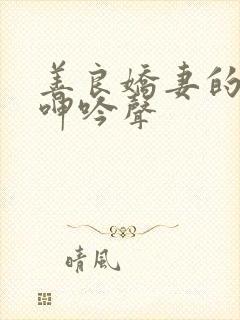 善良嬌妻的
呻吟聲
晴風